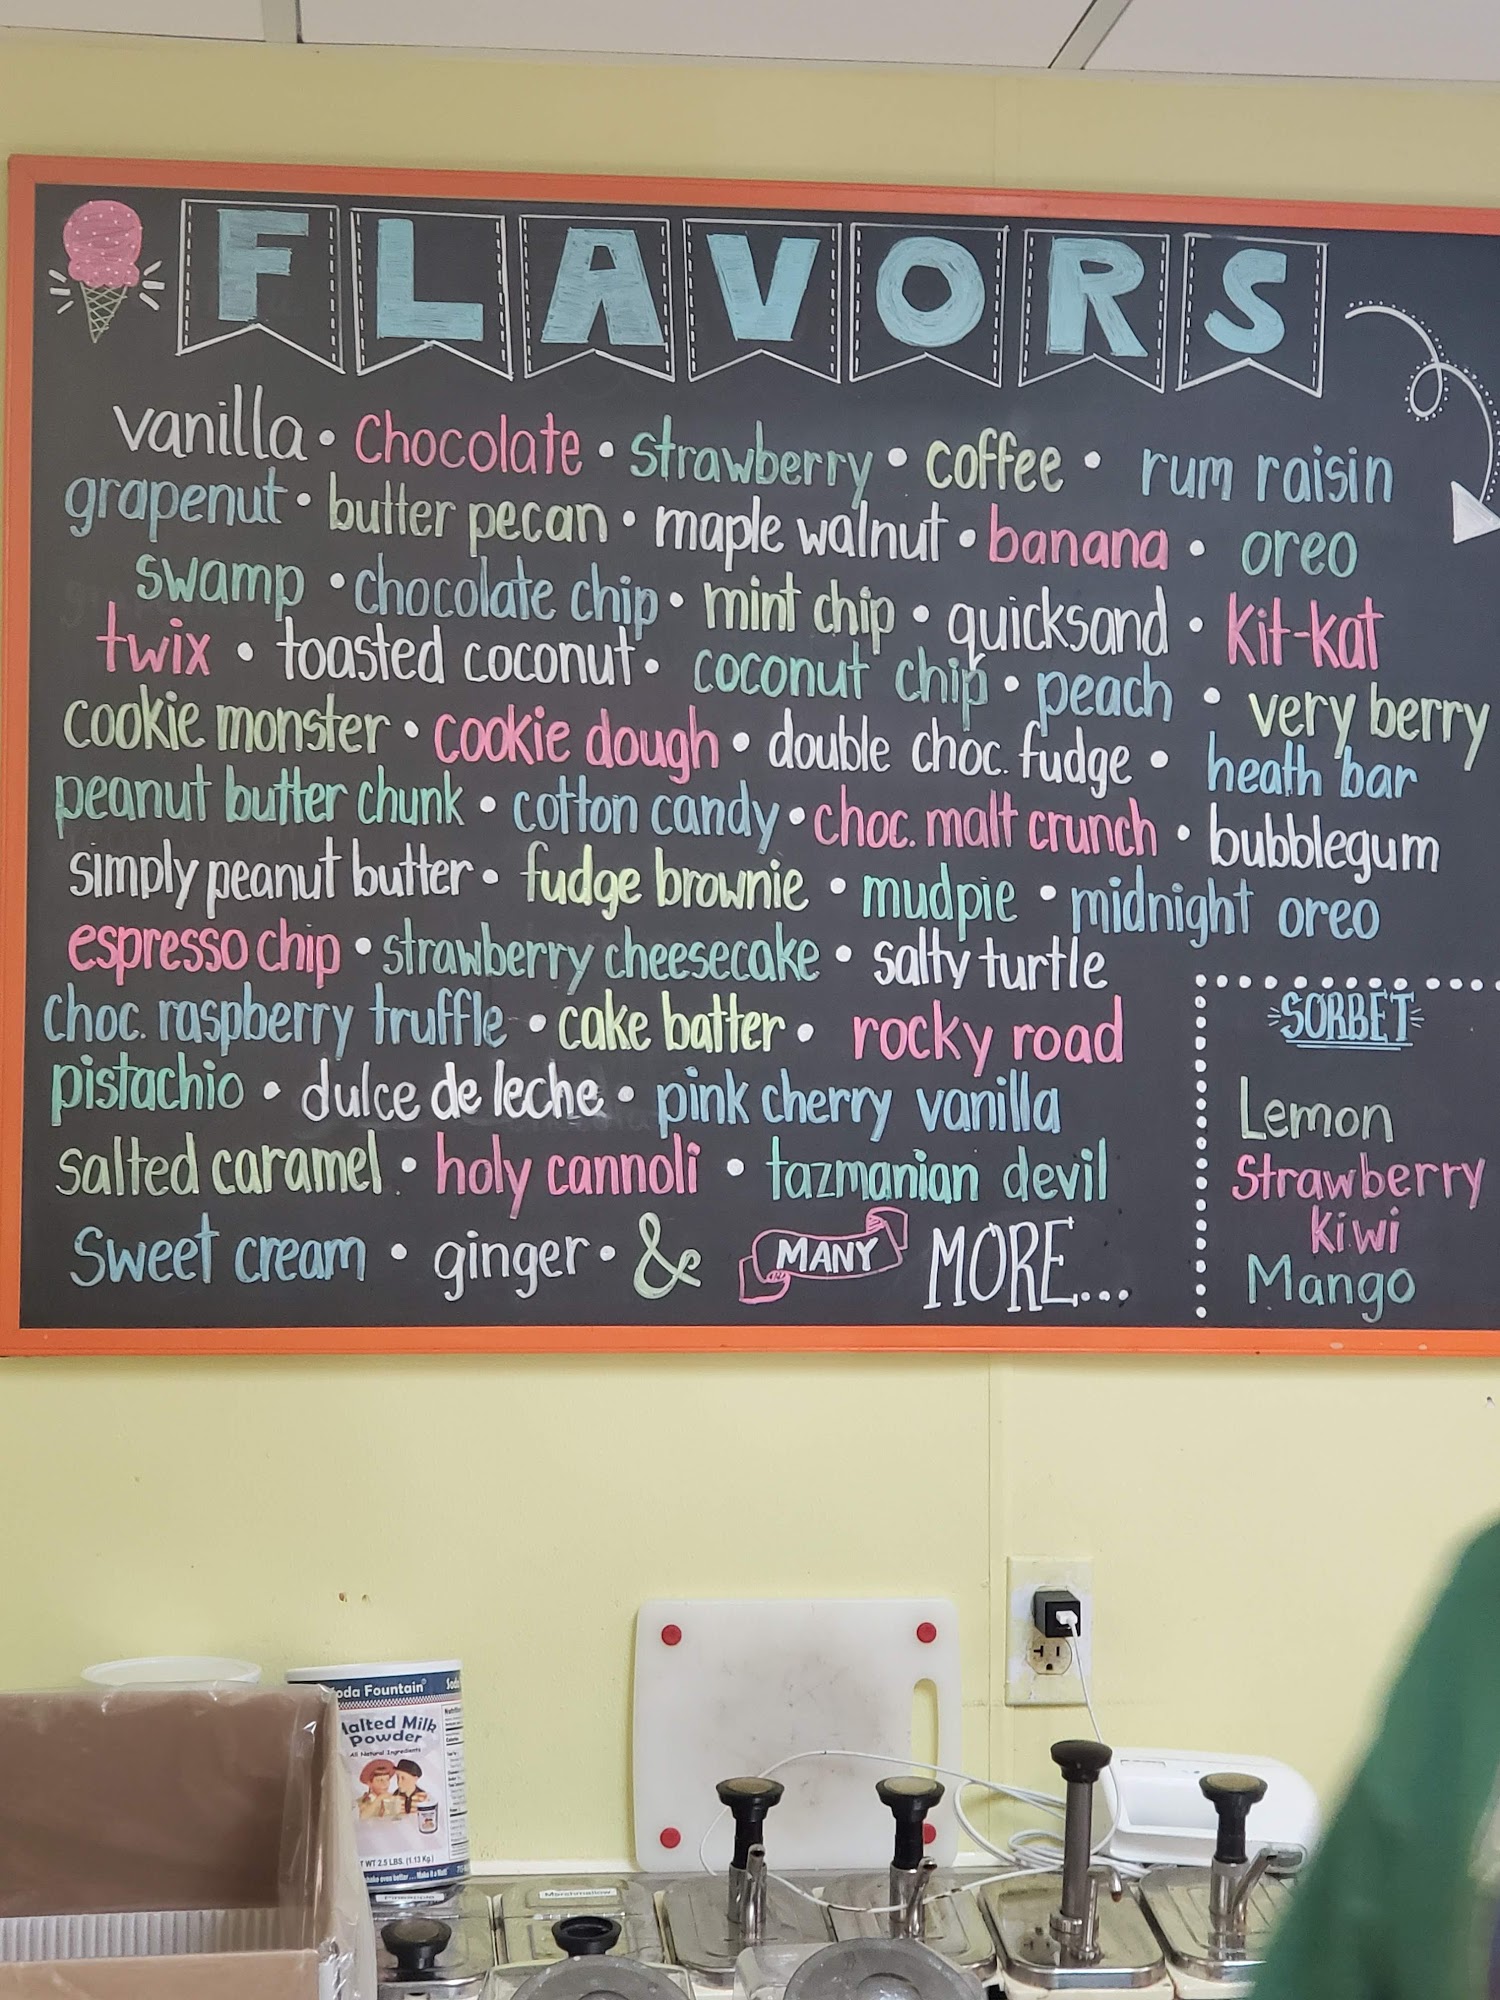 FLAVORS
vanilla • Chocolate • strawberry • coffee • rum raisin
grapenut • butter pecan • maple walnut • banana • oreo
swamp • chocolate chip • mint chip • quicksand • kit-kat
twix • toasted coconut • coconut chip • peach • very berry
cookie monster • cookie dough • double choc. fudge • heath bar
peanut butter chunk • cotton candy • choc. malt crunch • bubblegum
simply peanut butter • fudge brownie • mudpie • midnight oreo
espresso chip • strawberry cheesecake • salty turtle
choc. raspberry truffle • cake batter • rocky road
pistachio • dulce de leche • pink cherry vanilla
salted caramel • holy cannoli • tazmanian devil
Sweet cream • ginger • & MANY MORE...
SORBET
Lemon
Strawberry
Kiwi
Mango
oda Fountain
Malted Milk
Powder
All Natural Ingredients
T WT 2.5 LBS. (1.13 Kg.)
Marshmallow